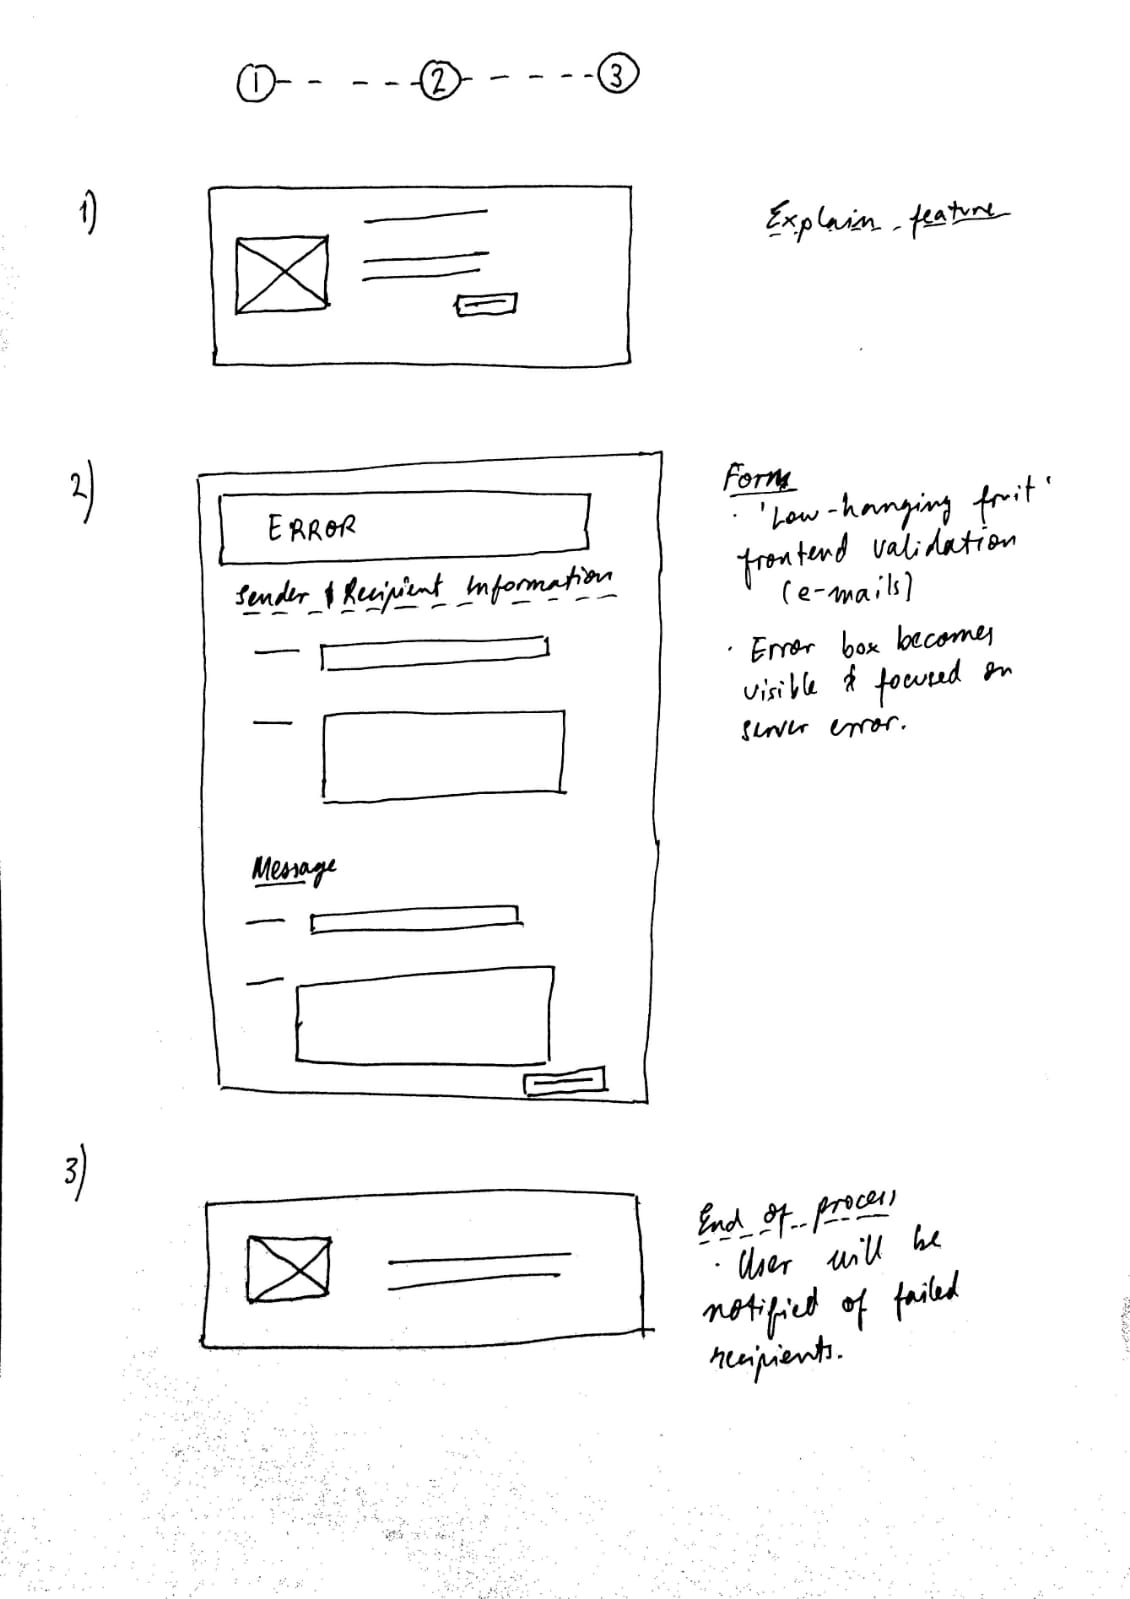 1 2 3
1)
Explain feature
2)
ERROR
Sender & Recipient Information
Message
Form
· 'Low-hanging fruit'
frontend validation
(e-mails)
· Error box becomes
visible & focused on
server error.
3)
End of process
· User will be
notified of failed
recipients.